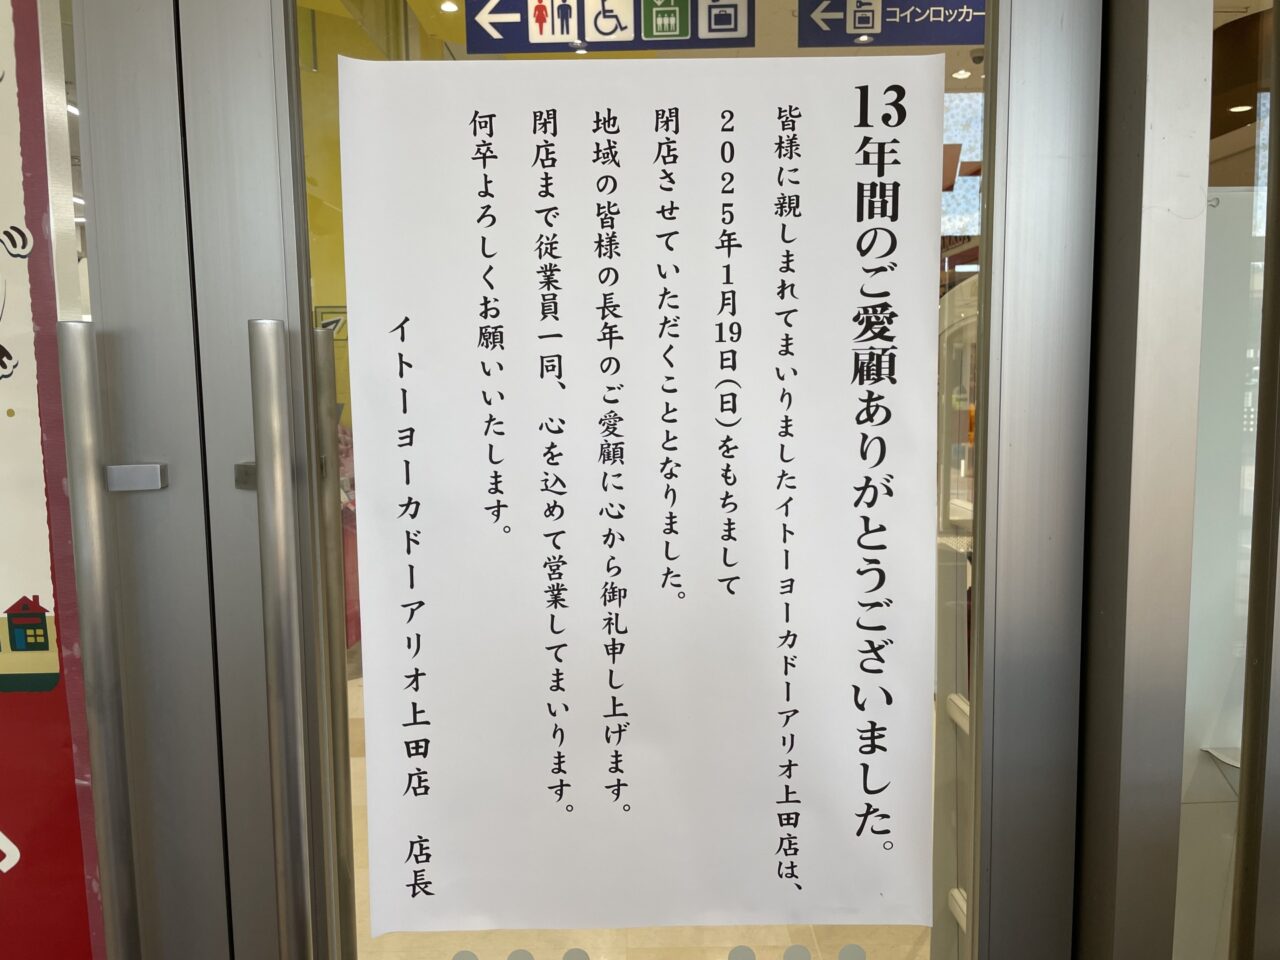 コインロッカー
13年間のご愛顧ありがとうございました。
皆様に親しまれてまいりましたイトーヨーカドーアリオ上田店は、
2025年1月19日(日)をもちまして
閉店させていただくこととなりました。
地域の皆様の長年のご愛顧に心から御礼申し上げます。
閉店まで従業員一同、心を込めて営業してまいります。
何卒よろしくお願いいたします。
イトーヨーカドーアリオ上田店 店長